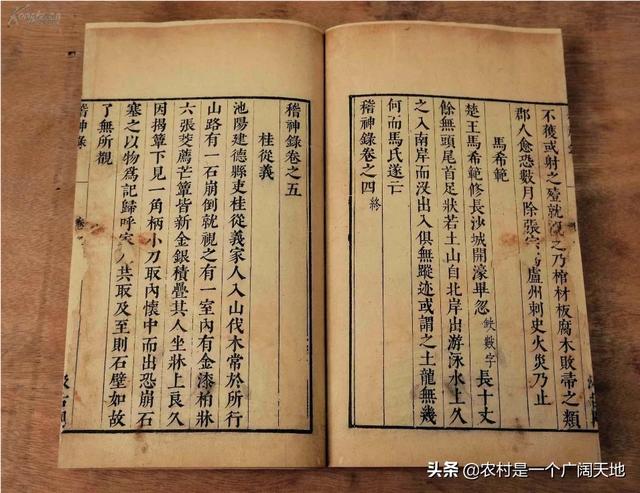 不獲或射之殪就之乃棺材板腐木敗帚之類
郡人愈恐數月除張宗廬州刺史火災乃止
馬希範
楚王馬希範修長沙城開濠畢忽缺數字長十丈
餘無頭尾首足狀若土山自北岸出游泳水上久
之入南岸而沒出入俱無蹤迹或謂之土龍無幾
何而馬氏遂亡
稽神錄卷之四終
稽神錄卷之五
桂從義
池陽建德縣吏桂從義家人入山伐木常於所行
山路有一石崩倒就視之有一室內有金漆柏牀
六張茭薦芒簟皆新金銀積疊其人坐牀上良久
因揭簟下見一角柄小刀取內懷中而出恐崩石
塞之以物為記歸呼家人共取及至則石壁如故
了無所觀
稽神錄
头条 @农村是一个广阔天地